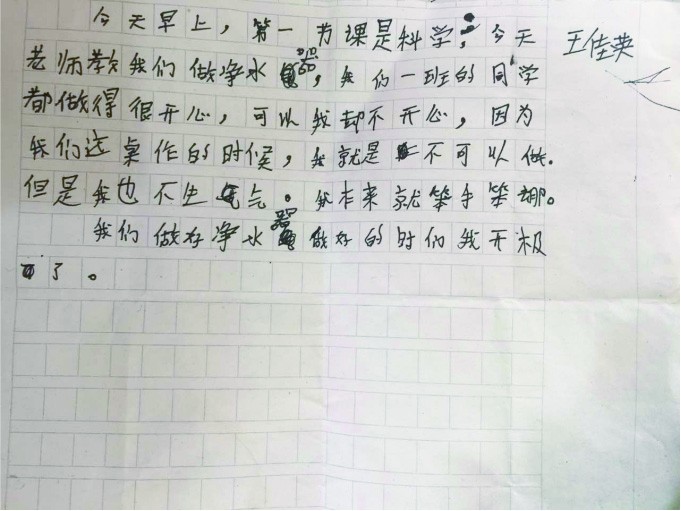 今天早上，第一节课是科学，今天 王佳英
老师教我们做净水器，我们一班的同学
都做得很开心，可以我却不开心，因为
我们这桌作的时候，我就是不可以做.
但是我也不生气。我本来就笨手笨脚。
我们做好净水器做好的时们我开极
了。